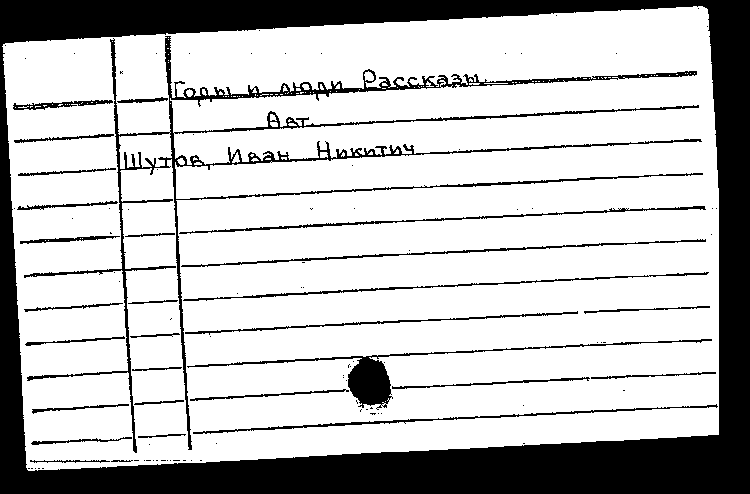 Годы и люди Рассказы.
Авт.
Шутов, Иван Никитич